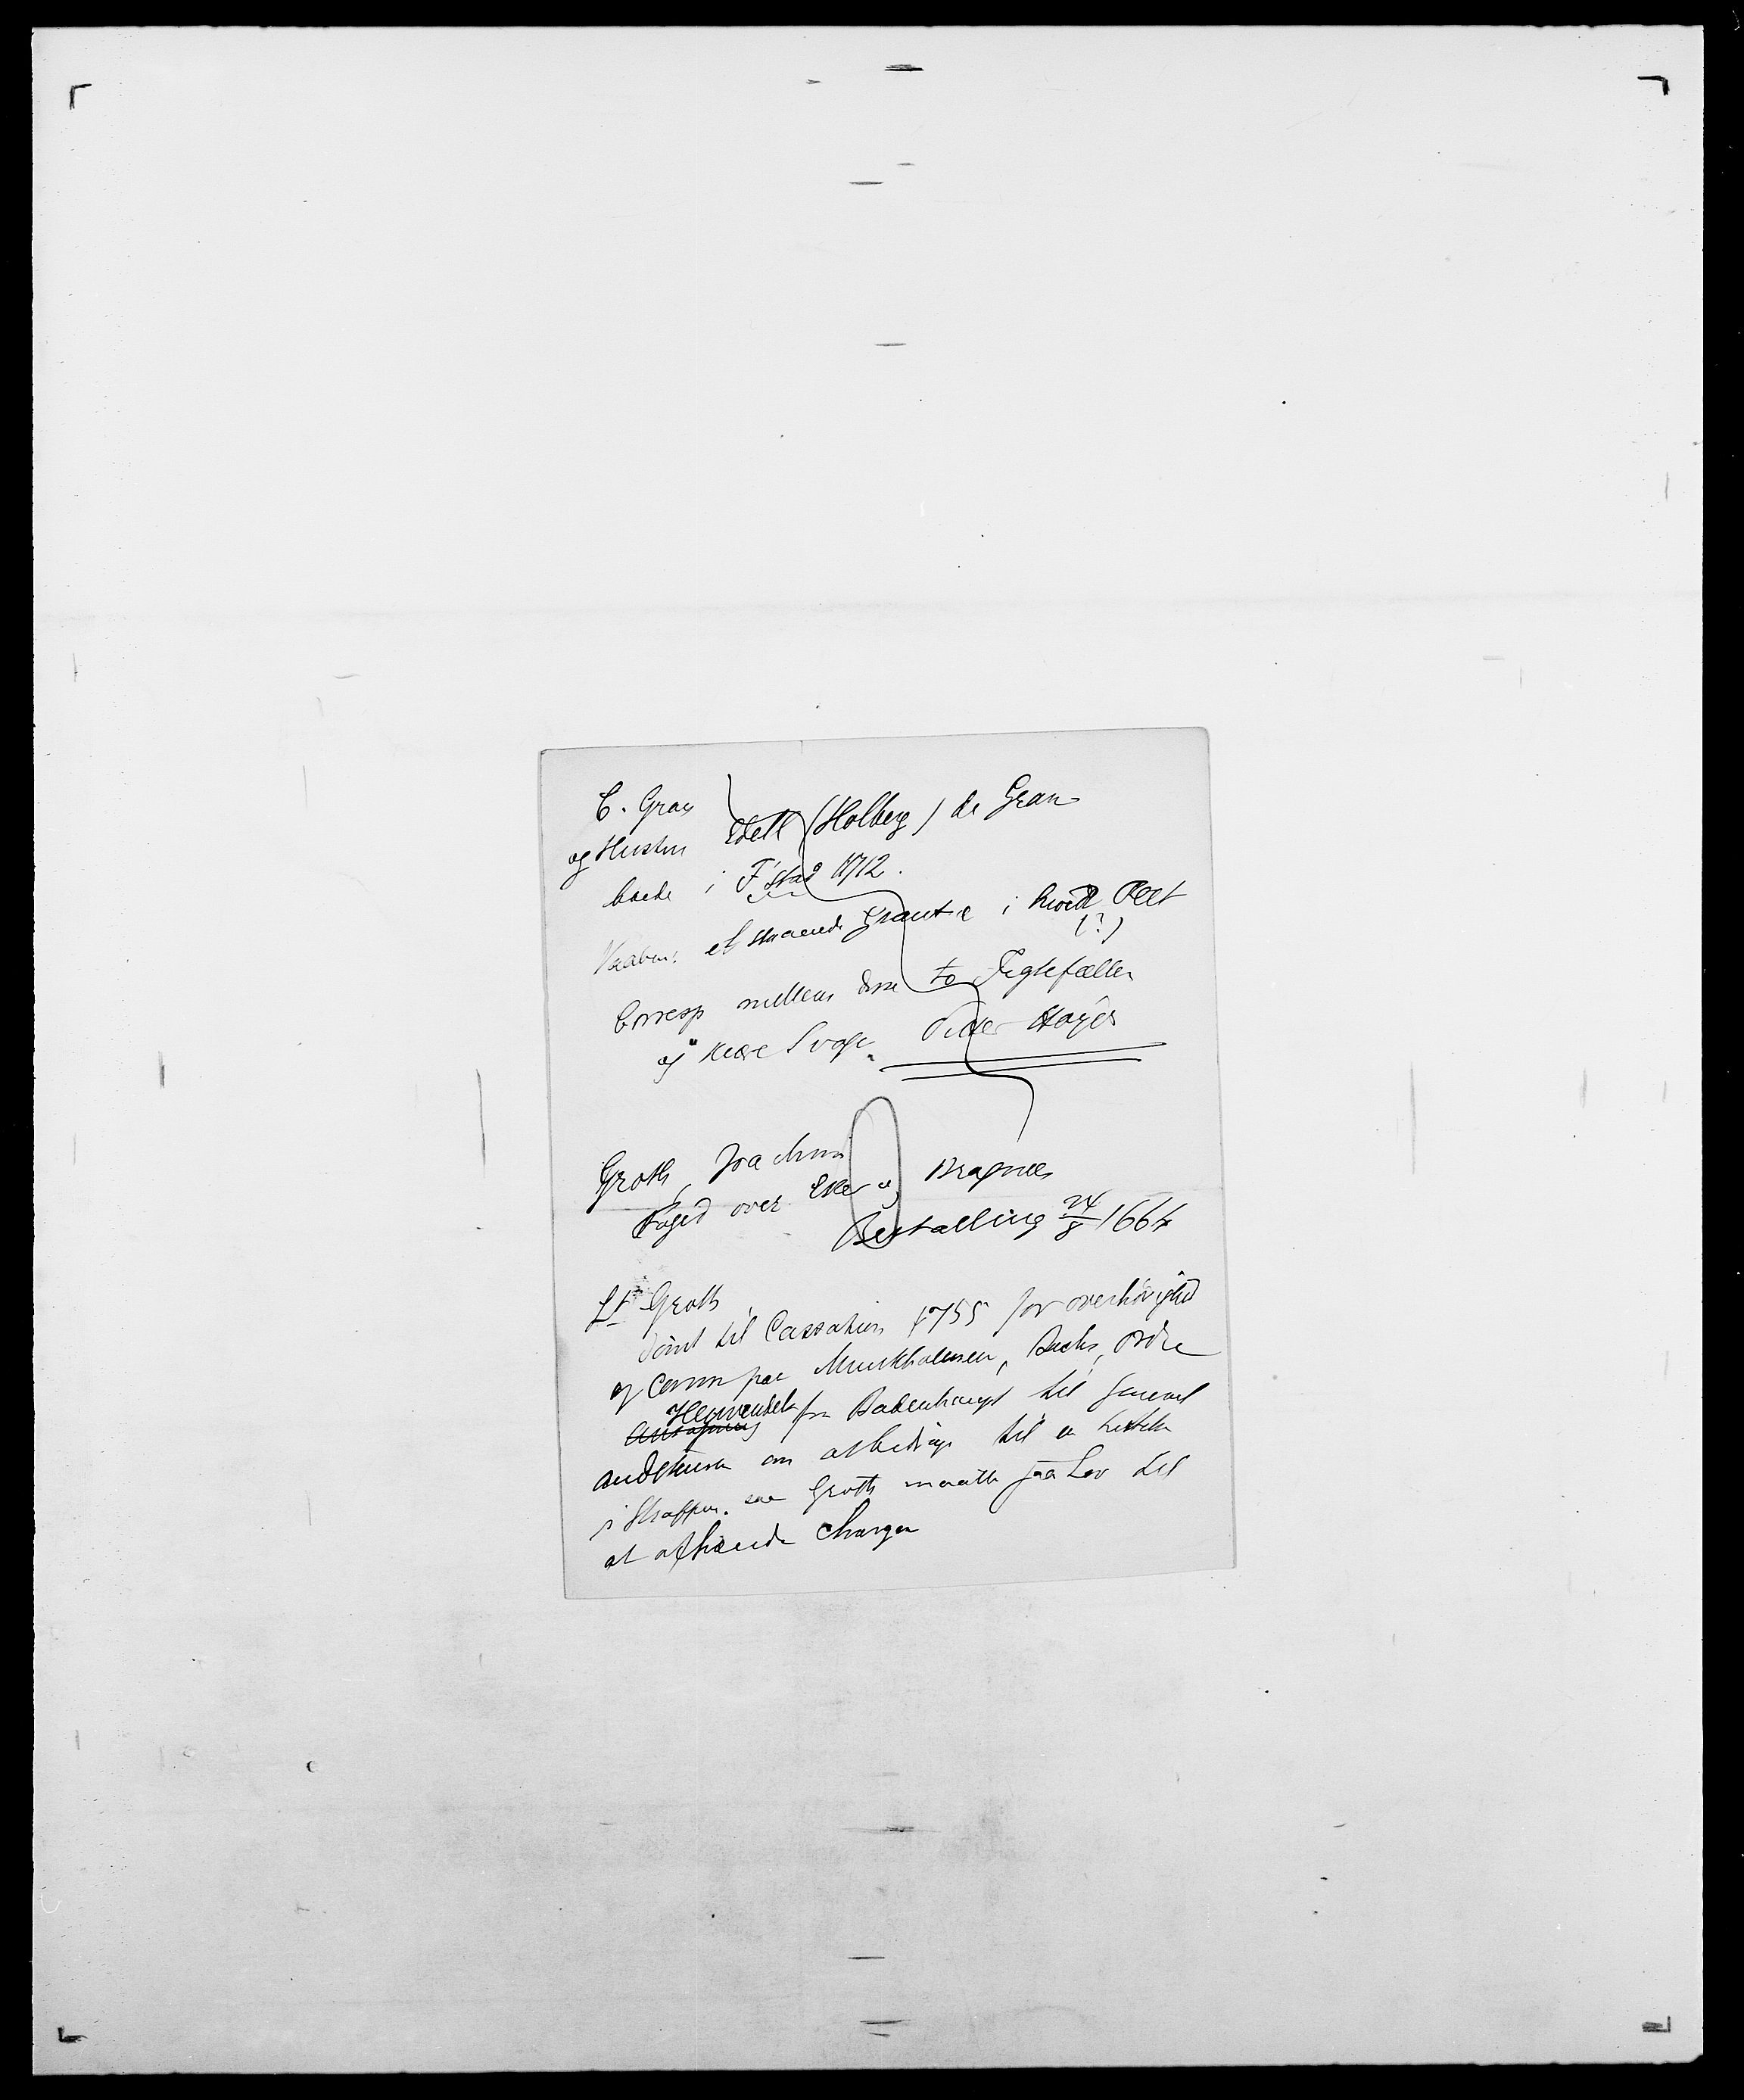 C. Gran
og Hustru Edell (Holberg) de Gran
bæde i F'stad 1712.
Vaaben: et staaende Grantræ i hvidt Felt
(?)
Corresp mellem disse to Ægtefæller
og " kiære Svoger " Peder Høyer
Groth, Joachim
Foged over Eker og Bragnæs
Bestalling 24/8 1664
Lt Groth
dömt til Cassation 1755 for overhörighed
og Comm paa Munkholmen, Sachs, Ordre
Henvendelse fra Badenhaupt til General
om til en
i Straffen. Groth maatte faa Lov til
at afhænde Chargen